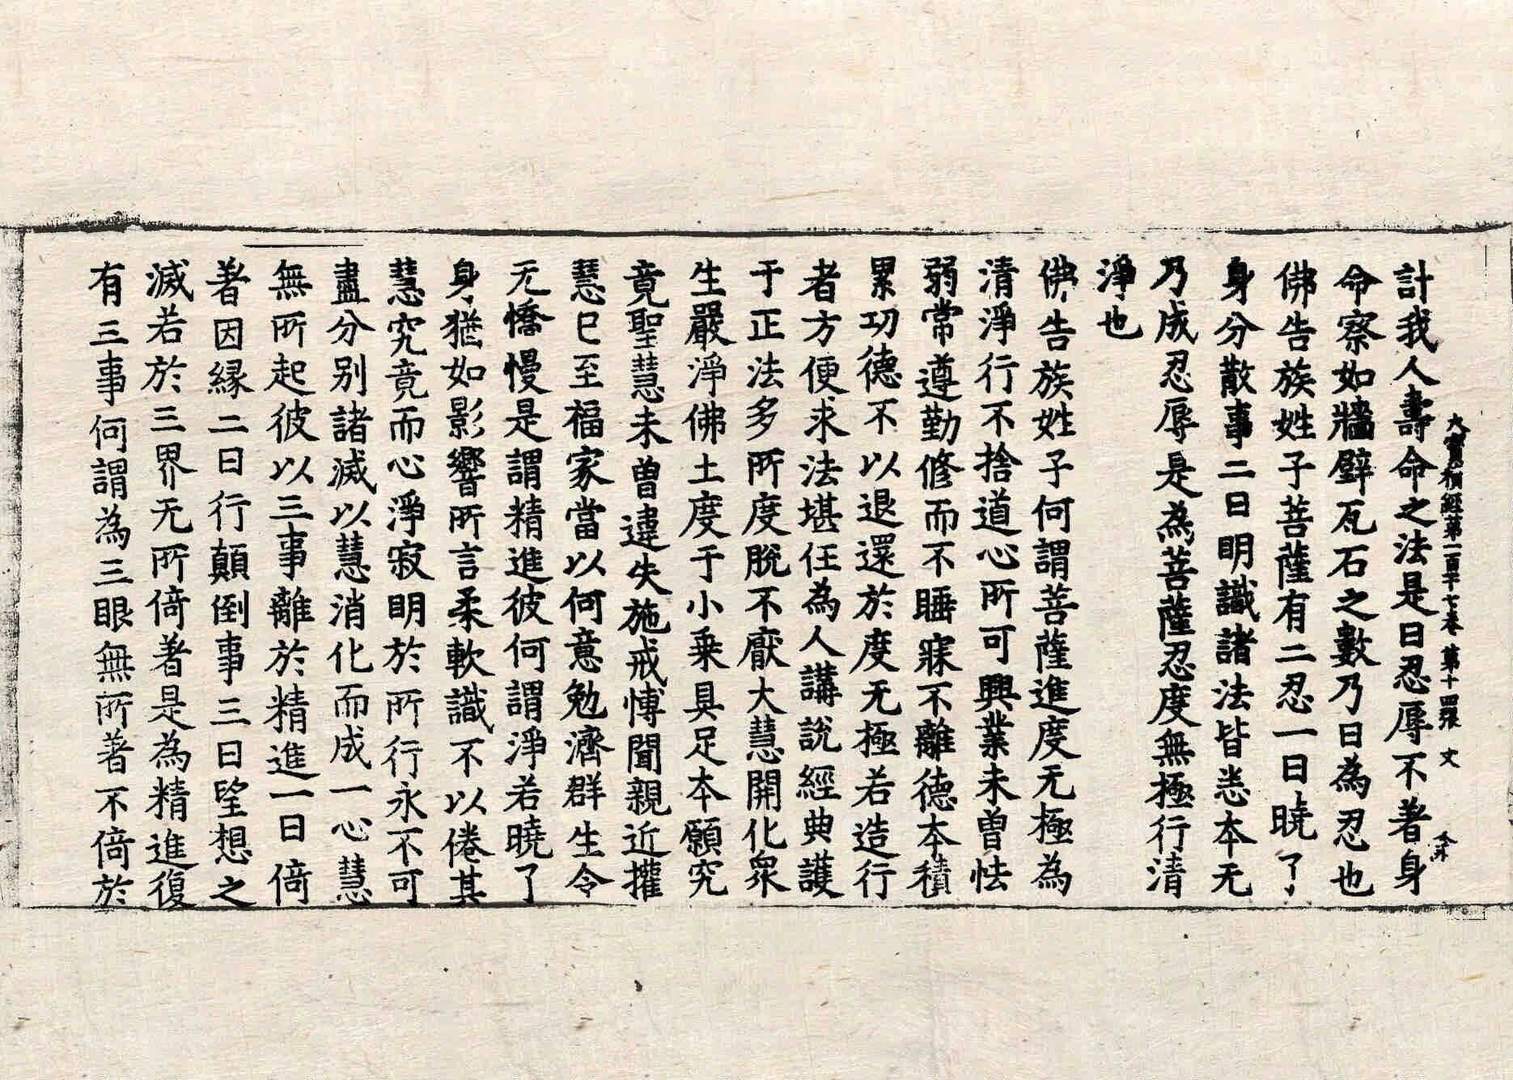 大寶積經第一百十七卷 第十四張 文
計我人壽命之法是曰忍辱不著身
命察如牆壁瓦石之數乃曰為忍也
佛告族姓子菩薩有二忍一曰曉了
身分散事二曰明識諸法皆悉本无
乃成忍辱是為菩薩忍度無極行清
淨也
佛告族姓子何謂菩薩進度无極為
清淨行不捨道心所可興業未曾怯
弱常遵勤修而不睡寐不離德本積
累功德不以退還於度无極若造行
者方便求法堪任為人講說經典護
于正法多所度脫不厭大慧開化眾
生嚴淨佛土度于小乗具足本願究
竟聖慧未曽違失施戒博聞親近攉
慧巳至福家當以何意勉濟群生令
无憍慢是謂精進彼何謂淨若曉了
身猶如影響所言柔軟識不以倦其
慧究竟而心淨寂明於所行永不可
盡分别諸滅以慧消化而成一心慧
無所起彼以三事離於精進一曰倚
著因緣二曰行顛倒事三曰望想之
滅若於三界无所倚著是為精進復
有三事何謂為三眼無所著不倚於